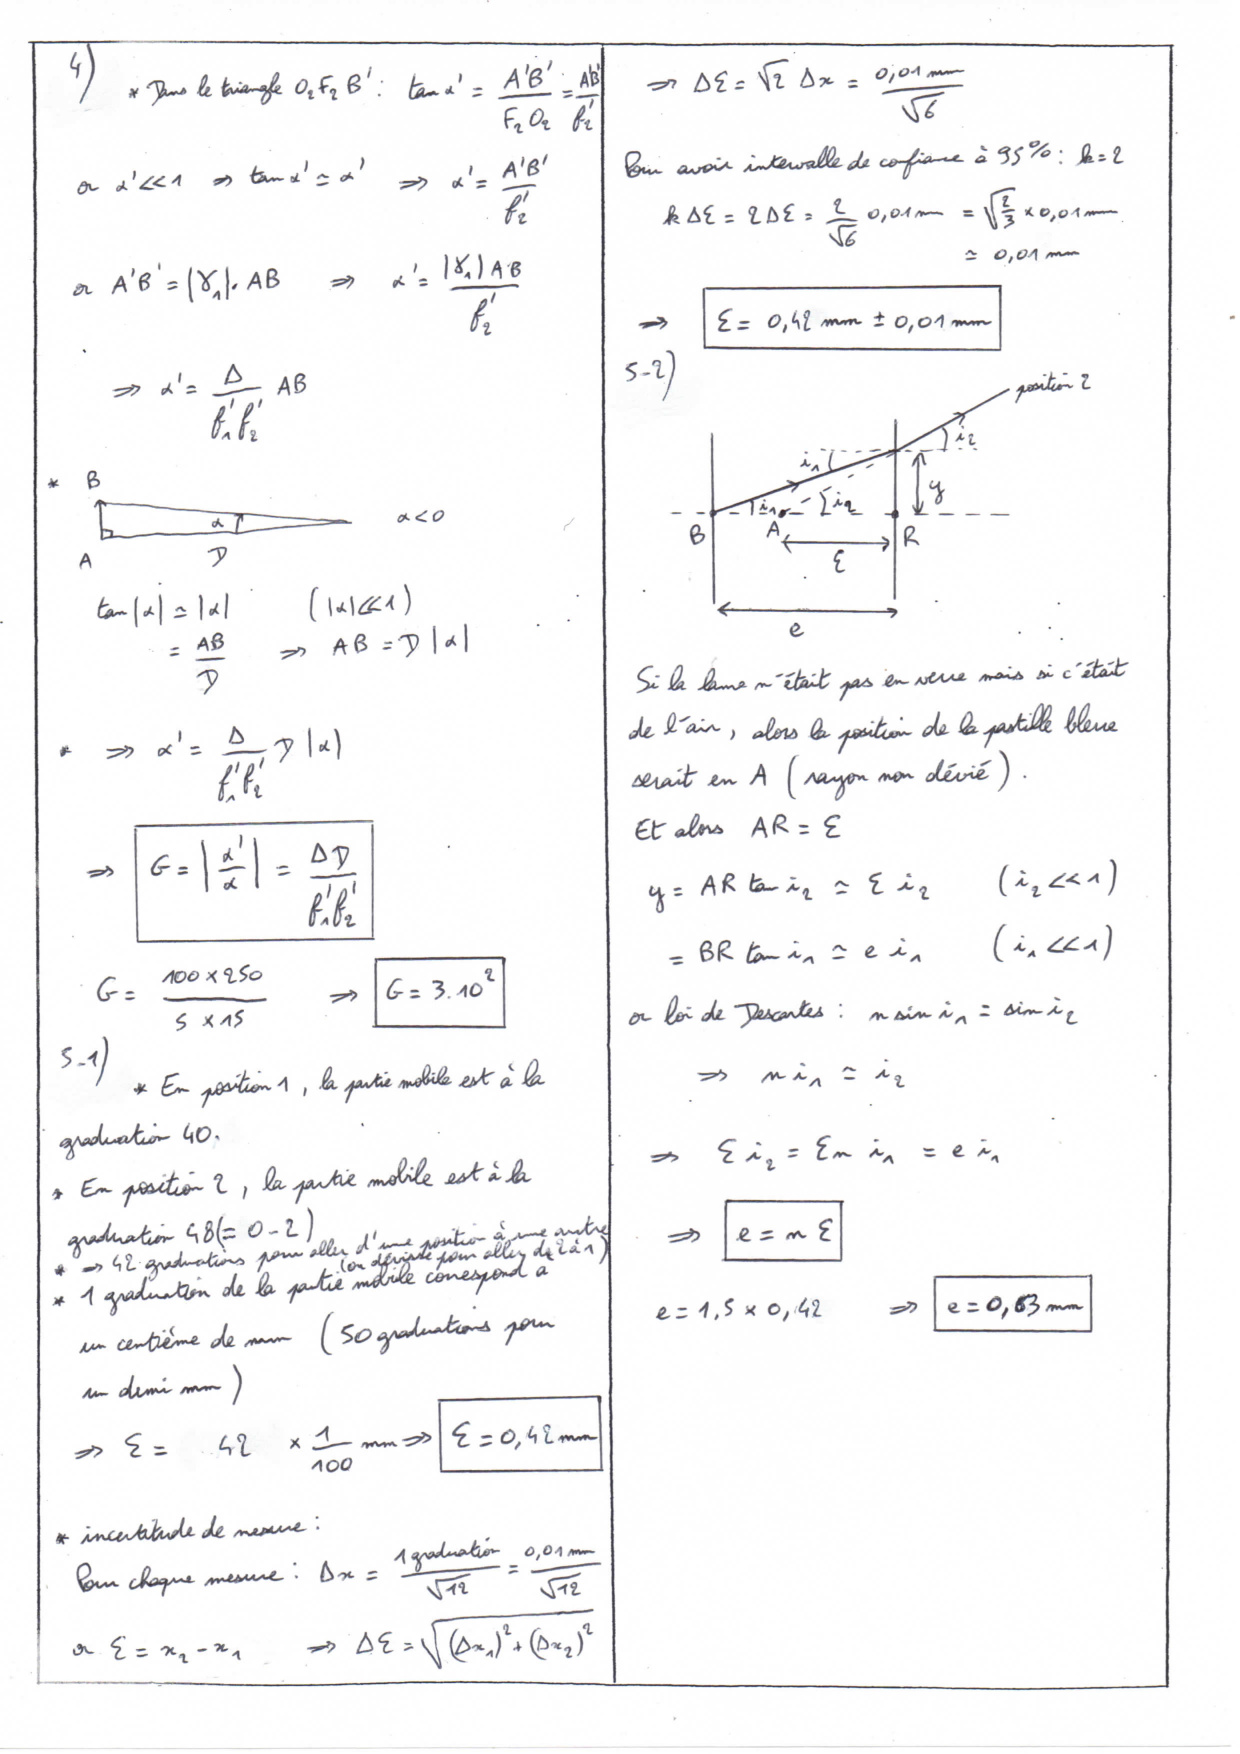 4)
* Dans le triangle O₂F₂B' : tan α' = A'B' / F₂O₂ = A'B' / f₂'
or α' << 1 ⇒ tan α' ≃ α' ⇒ α' = A'B' / f₂'
or A'B' = |γ₁|. AB ⇒ α' = |γ₁| AB / f₂'
⇒ α' = Δ / f₁'f₂' AB
* B
α
α<0
A
D
tan|α| ≃ |α| (|α|<<1)
= AB / D ⇒ AB = D |α|
* ⇒ α' = Δ / f₁'f₂' D |α|
⇒ G = |α' / α| = ΔD / f₁'f₂'
G = 100 x 250 / 5 x 15 ⇒ G = 3.10²
5-1)
* En position 1, la partie mobile est à la
graduation 40.
* En position 2, la partie mobile est à la
graduation 48 (= 0 - 2)
* ⇒ 42 graduations pour aller d'une position à une autre
(ou dévissé pour aller de 2 à 1)
* 1 graduation de la partie mobile correspond à
un centième de mm (50 graduations pour
un demi mm)
⇒ Ɛ = 42 x 1 / 100 mm ⇒ Ɛ = 0,42 mm
* incertitude de mesure :
Pour chaque mesure : Δx = 1 graduation / √12 = 0,01 mm / √12
or Ɛ = x₂ - x₁ ⇒ ΔƐ = √(Δx₁)² + (Δx₂)²
⇒ ΔƐ = √2 Δx = 0,01 mm / √6
Pour avoir intervalle de confiance à 95% : k = 2
k ΔƐ = 2 ΔƐ = 2 / √6 0,01 mm = √2/3 x 0,01 mm
≃ 0,01 mm
⇒ Ɛ = 0,42 mm ± 0,01 mm
5-2)
position 2
i₂
i₁
y
i₁
i₂
B
A
R
Ɛ
e
Si la lame n'était pas en verre mais si c'était
de l'air, alors la position de la pastille bleue
serait en A (rayon non dévié).
Et alors AR = Ɛ
y = AR tan i₂ ≃ Ɛ i₂ (i₂ << 1)
= BR tan i₁ ≃ e i₁ (i₁ << 1)
or loi de Descartes : n sin i₁ = sin i₂
⇒ n i₁ ≃ i₂
⇒ Ɛ i₂ = Ɛn i₁ = e i₁
⇒ e = n Ɛ
e = 1,5 x 0,42 ⇒ e = 0,63 mm